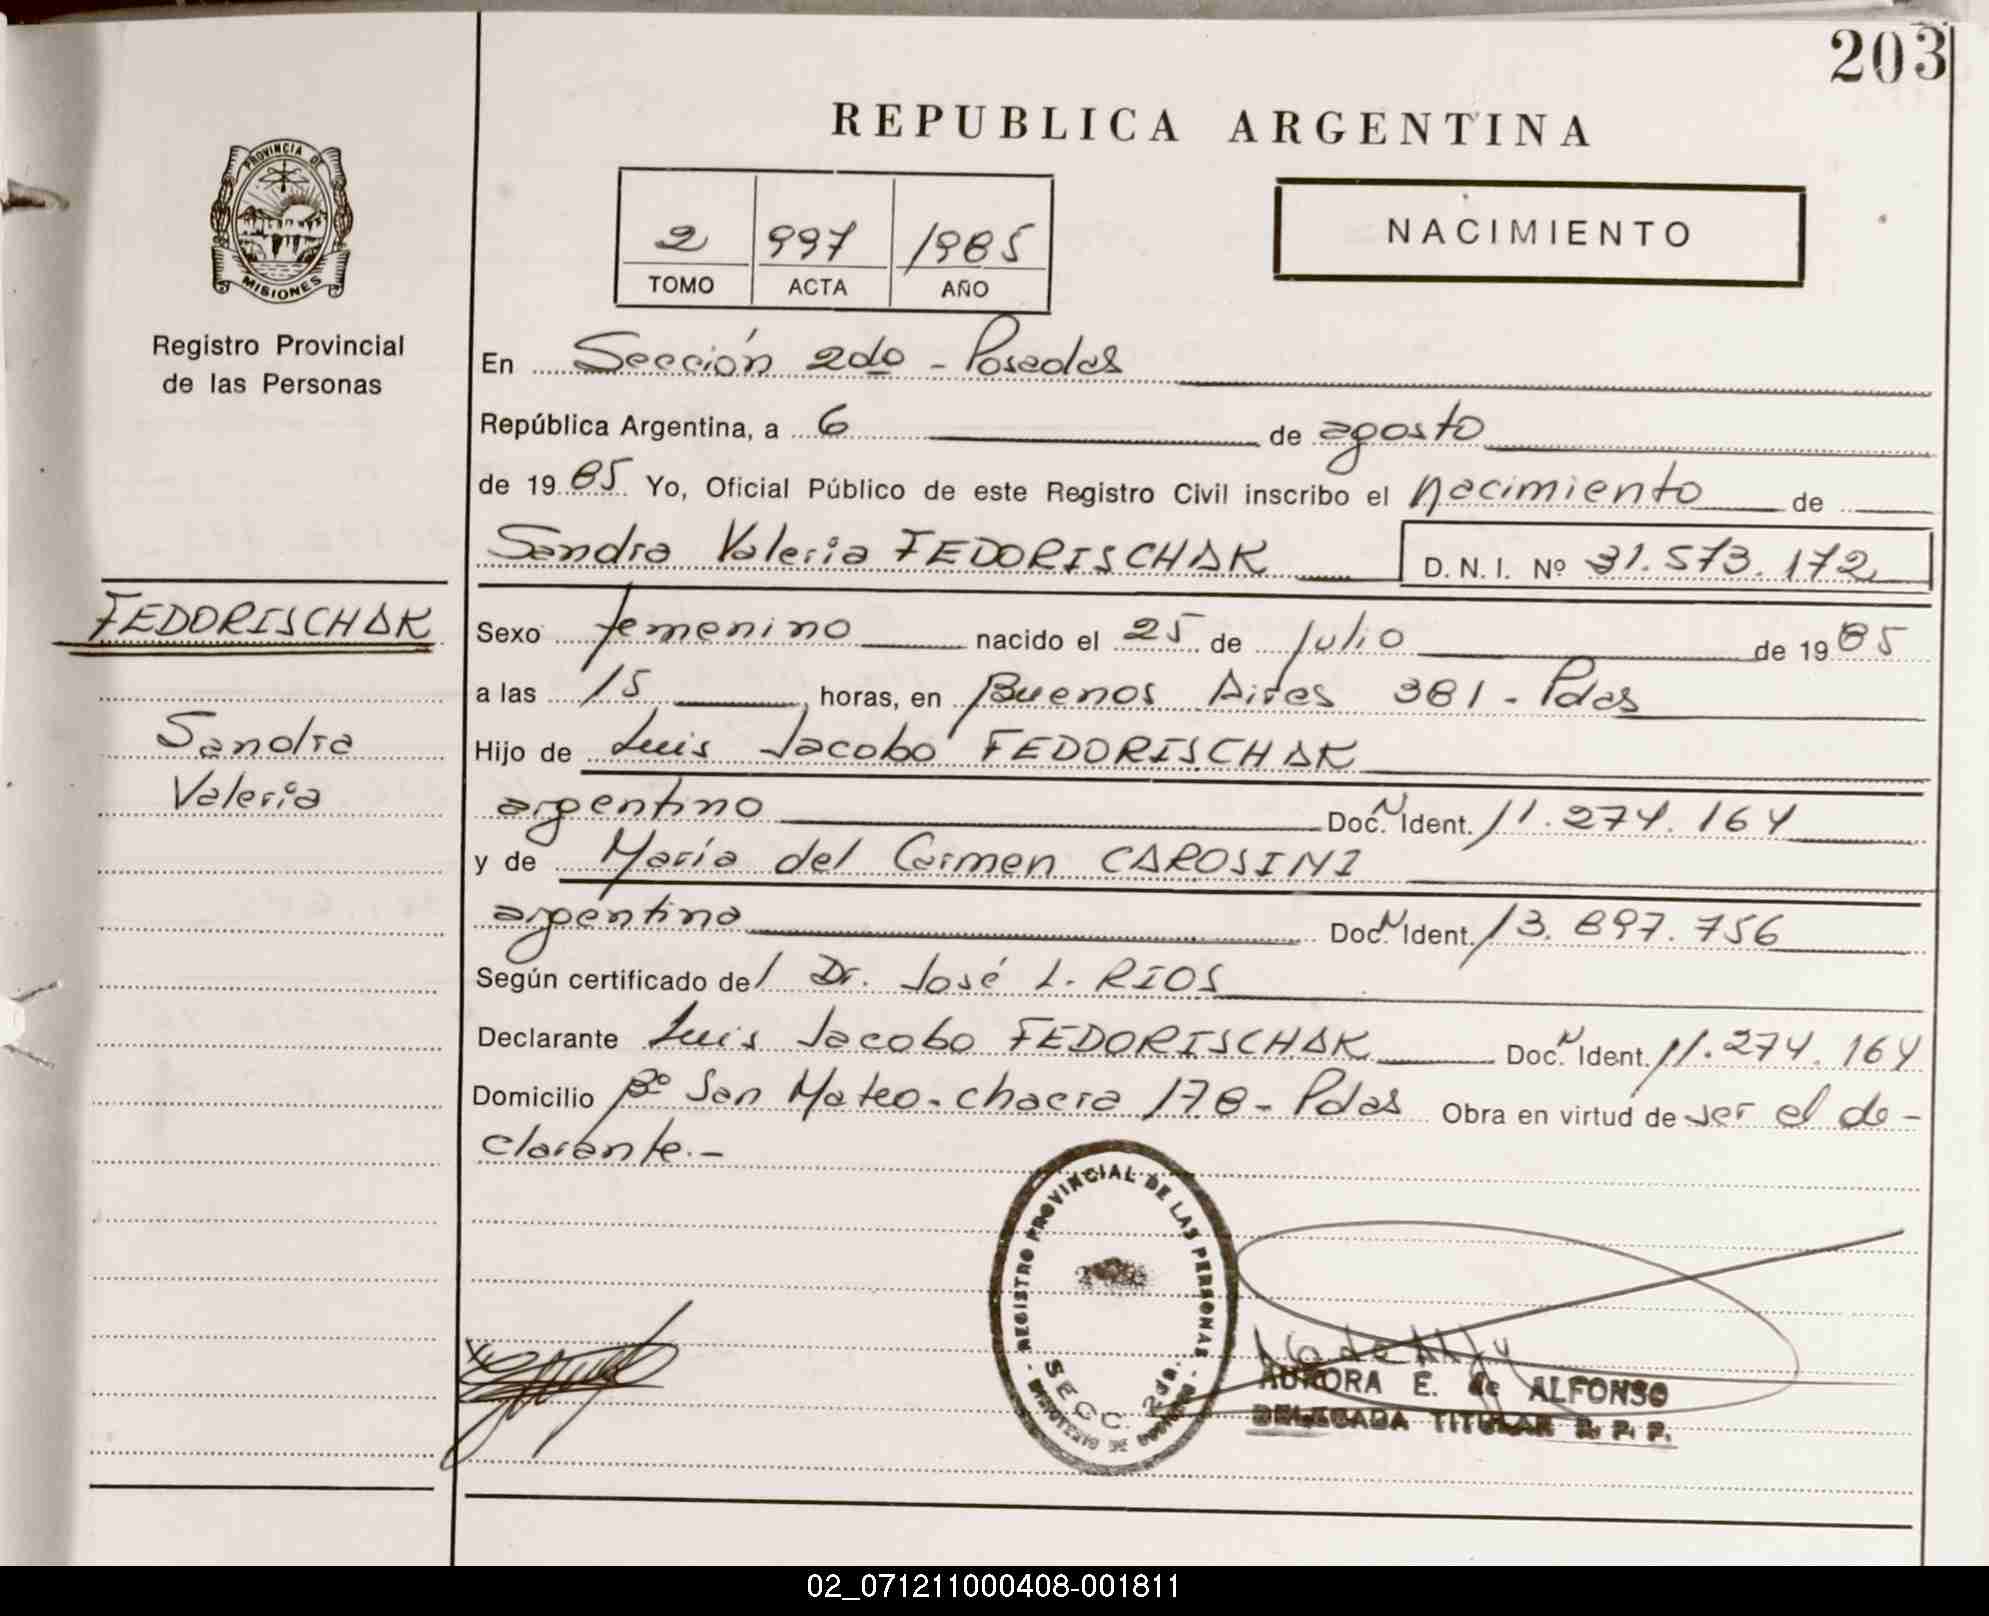 203
REPUBLICA ARGENTINA
PROVINCIA DE
MISIONES
Registro Provincial
de las Personas
2 997 1985
TOMO ACTA AÑO
NACIMIENTO
En Sección 2da - Posadas
República Argentina, a 6 de agosto
de 1985 Yo, Oficial Público de este Registro Civil inscribo el nacimiento de
Sandra Valeria FEDORISCHAK D. N. I. Nº 31.573.172
FEDORISCHAK
Sandra
Valeria
Sexo femenino nacido el 25 de Julio de 1985
a las 15 horas, en Buenos Aires 381 - Pdas
Hijo de Luis Jacobo FEDORISCHAK
argentino Doc. N Ident. 11.274.164
y de María del Carmen CAROSINI
argentina Doc. N Ident. 13.897.756
Según certificado del Dr. José L. RIOS
Declarante Luis Jacobo FEDORISCHAK Doc. N Ident. 11.274.164
Domicilio Bº San Mateo - chacra 178 - Pdas Obra en virtud de ser el de-
clarante.-
REGISTRO PROVINCIAL DE LAS PERSONAS
SECC. 2da.
AURORA E. de ALFONSO
DELEGADA TITULAR R. P. P.
02_071211000408-001811